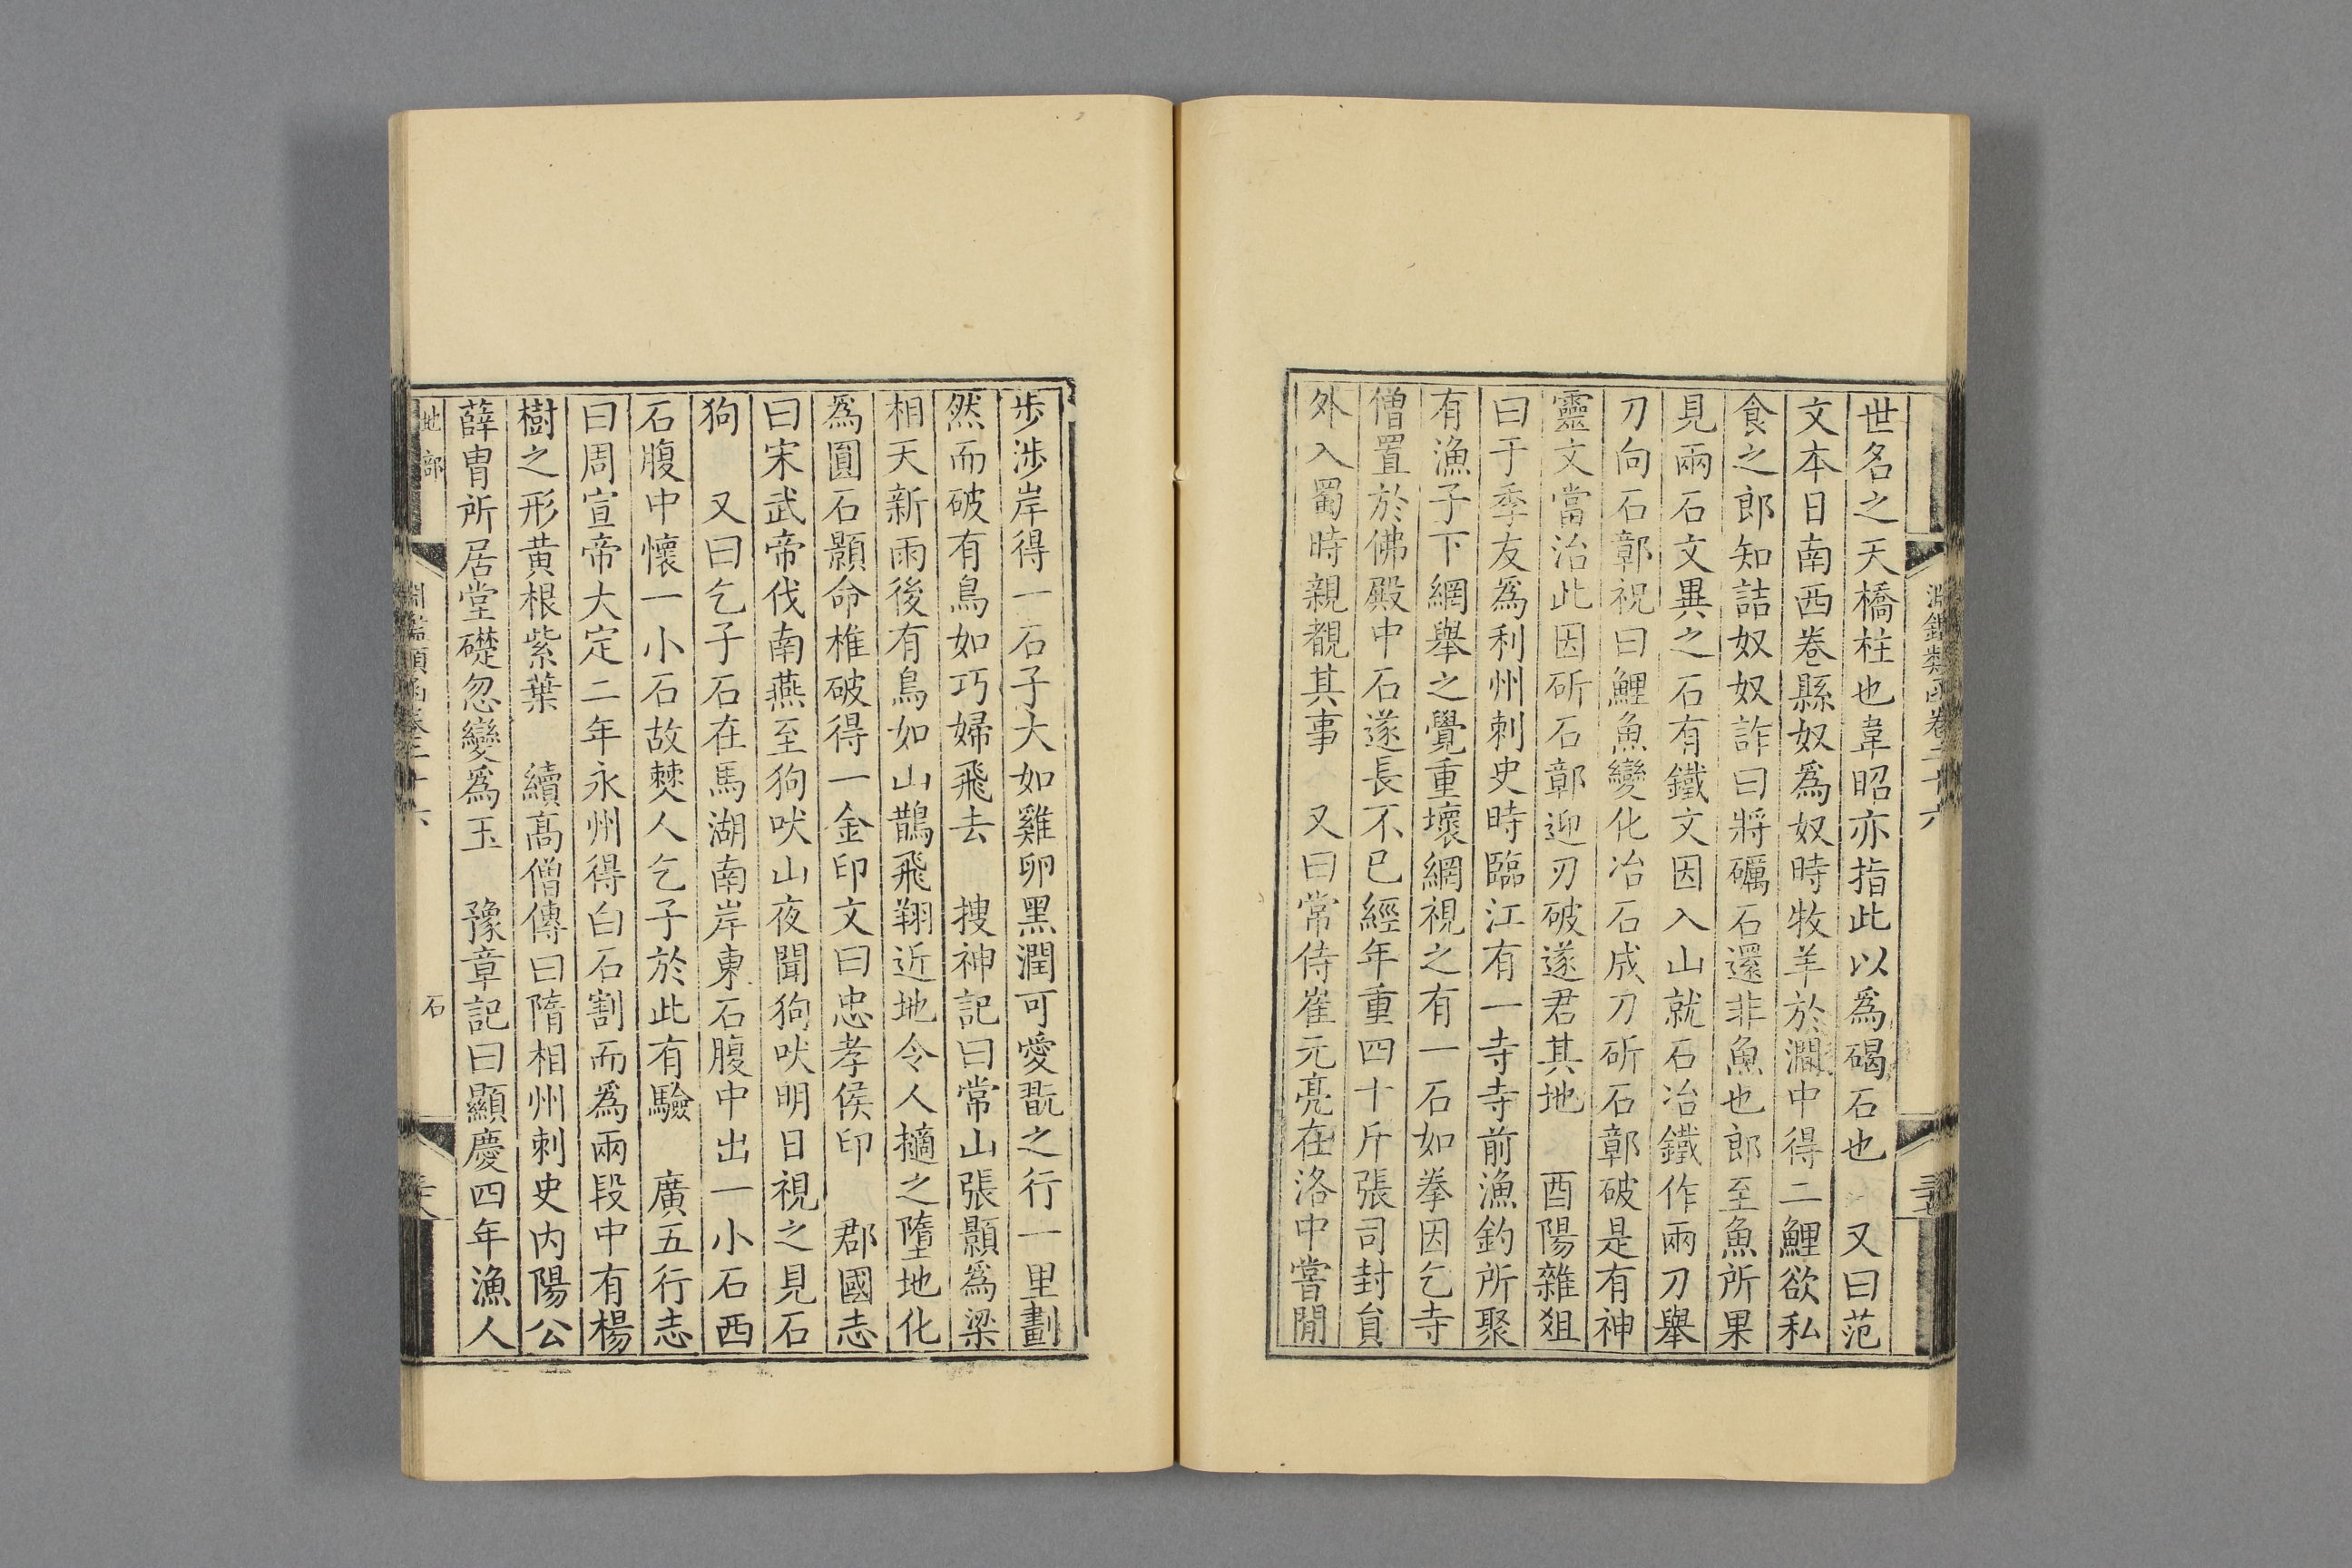 淵鑑類函卷二十六
世名之天橋柱也韋昭亦指此以爲碣石也　又曰范
文本日南西卷縣奴爲奴時牧羊於澗中得二鯉欲私
食之郎知詰奴奴詐曰將礪石還非魚也郎至魚所果
見兩石文異之石有鐵文因入山就石冶鐵作兩刀舉
刀向石鄣祝曰鯉魚變化冶石成刀斫石鄣破是有神
靈文當治此因斫石鄣迎刃破遂君其地　酉陽雜俎
曰于季友爲利州刺史時臨江有一寺寺前漁釣所聚
有漁子下網舉之覺重壞網視之有一石如拳因乞寺
僧置於佛殿中石遂長不已經年重四十斤張司封員
外入蜀時親覩其事　又曰常侍崔元亮在洛中嘗閒
步涉岸得一石子大如雞卵黑潤可愛翫之行一里劃
然而破有鳥如巧婦飛去　搜神記曰常山張顥爲梁
相天新雨後有鳥如山鵲飛翔近地令人擿之墮地化
爲圓石顥命椎破得一金印文曰忠孝侯印　郡國志
曰宋武帝伐南燕至狗吠山夜聞狗吠明日視之見石
狗　又曰乞子石在馬湖南岸東石腹中出一小石西
石腹中懷一小石故僰人乞子於此有驗　廣五行志
曰周宣帝大定二年永州得白石割而爲兩段中有楊
樹之形黄根紫葉　續高僧傳曰隋相州刺史内陽公
薛胄所居堂礎忽變爲玉　豫章記曰顯慶四年漁人
地部
淵鑑類函卷二十六
石